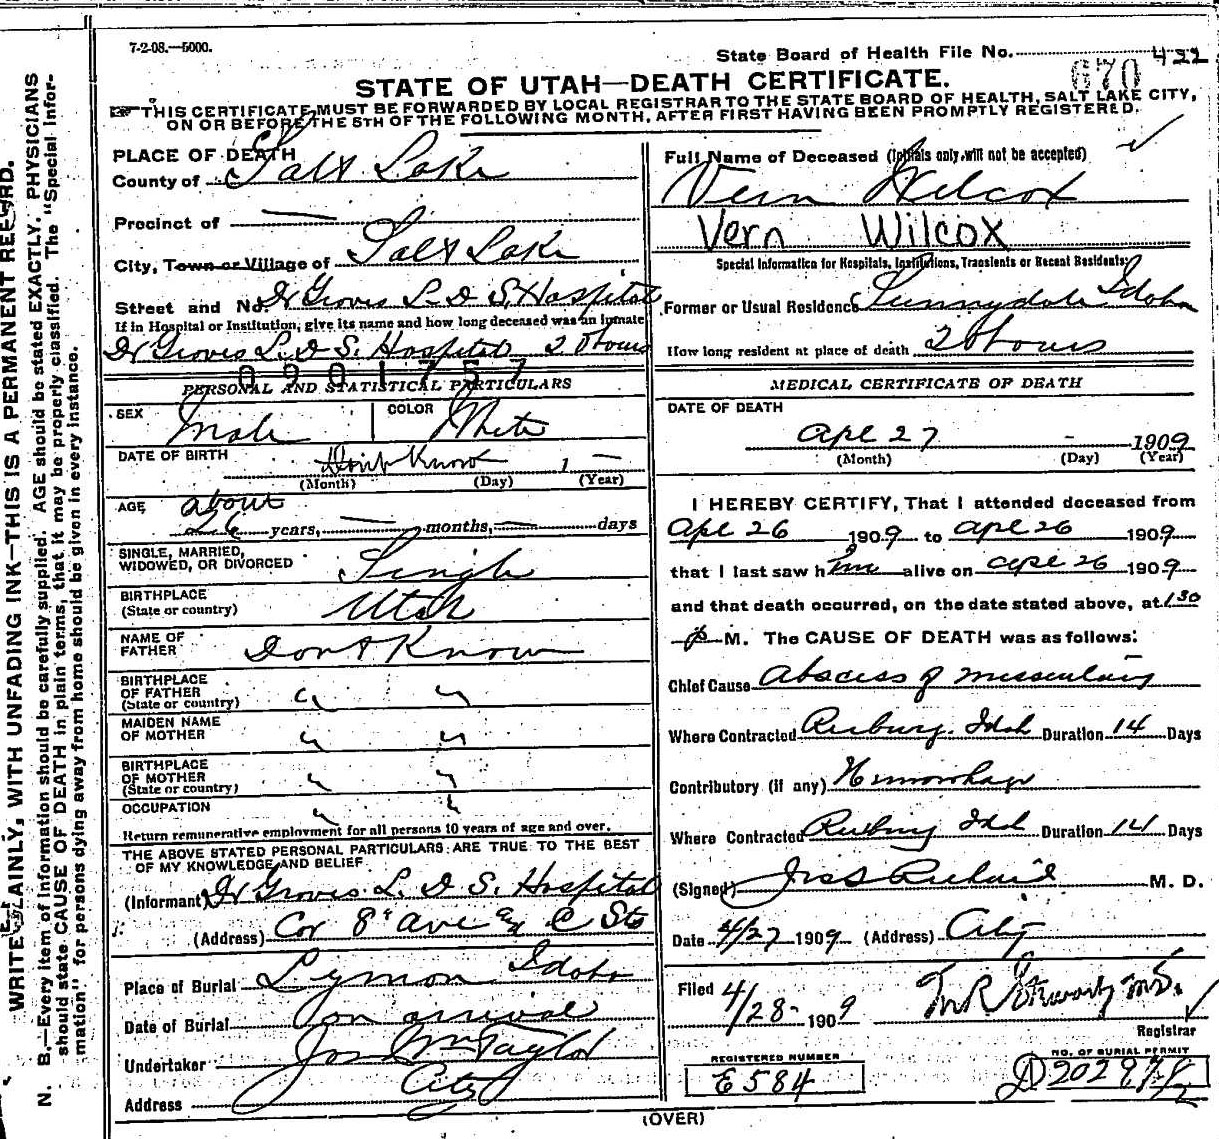 7-2-08.—5000.
State Board of Health File No. 422
670
STATE OF UTAH—DEATH CERTIFICATE.
THIS CERTIFICATE MUST BE FORWARDED BY LOCAL REGISTRAR TO THE STATE BOARD OF HEALTH, SALT LAKE CITY,
ON OR BEFORE THE 5TH OF THE FOLLOWING MONTH, AFTER FIRST HAVING BEEN PROMPTLY REGISTERED.
PLACE OF DEATH
County of Salt Lake
Precinct of —
City, Town or Village of Salt Lake
Street and No. Dr Groves L. D. S. Hospital
If in Hospital or Institution, give its name and how long deceased was an inmate
Dr Groves L. D. S. Hospital 20 hours
0901757
PERSONAL AND STATISTICAL PARTICULARS
SEX Male COLOR White
DATE OF BIRTH Don't Know 1 —
(Month) (Day) (Year)
AGE about
26 years, — months, — days
SINGLE, MARRIED,
WIDOWED, OR DIVORCED Single
BIRTHPLACE
(State or country) Utah
NAME OF
FATHER Dont Know
BIRTHPLACE
OF FATHER
(State or country) " "
MAIDEN NAME
OF MOTHER " "
BIRTHPLACE
OF MOTHER
(State or country) " "
OCCUPATION " "
Return remunerative employment for all persons 10 years of age and over.
THE ABOVE STATED PERSONAL PARTICULARS ARE TRUE TO THE BEST
OF MY KNOWLEDGE AND BELIEF
(Informant) Dr Groves L. D. S. Hospital
(Address) Cor 8" Ave and C Sts
Place of Burial Lyman Idaho
Date of Burial on arrival
Undertaker Jos Wm Taylor
Address City
Full Name of Deceased (Initials only will not be accepted)
Vern Wilcox
Vern Wilcox
Special Information for Hospitals, Institutions, Transients or Recent Residents:
Former or Usual Residence Sunnydale Idaho
How long resident at place of death 20 hours
MEDICAL CERTIFICATE OF DEATH
DATE OF DEATH
Apl 27 - 1909
(Month) (Day) (Year)
I HEREBY CERTIFY, That I attended deceased from
Apl 26 1909 to Apl 26 1909
that I last saw him alive on Apl 26 1909
and that death occurred, on the date stated above, at 1 30
P M. The CAUSE OF DEATH was as follows:
Chief Cause Abscess of
Where Contracted Rexburg. Idah Duration 14 Days
Contributory (if any) Hemorrhage
Where Contracted Rexburg Idah Duration 14 Days
(Signed) M. D.
Date 4/27 1909 (Address) City
Filed 4/28- 1909 M.D.
Registrar
REGISTERED NUMBER
E584
NO. OF BURIAL PERMIT
(OVER)
WRITE PLAINLY, WITH UNFADING INK—THIS IS A PERMANENT RECORD.
N. B.—Every item of information should be carefully supplied. AGE should be stated EXACTLY. PHYSICIANS
should state CAUSE OF DEATH in plain terms, that it may be properly classified. The "Special Infor-
mation" for persons dying away from home should be given in every instance.